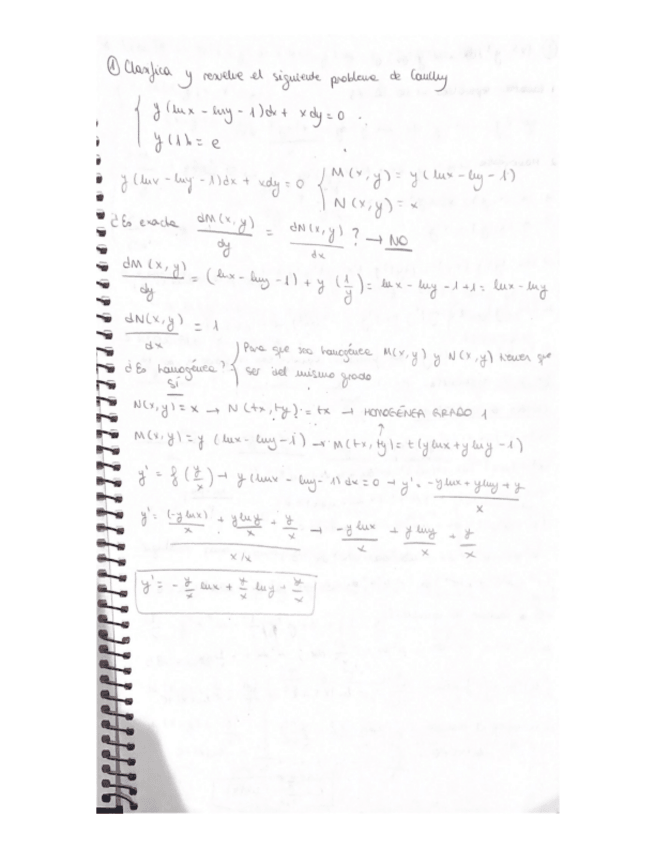 ① Clasifica y resuelve el siguiente problema de Cauchy
y (lnx - lny - 1)dx + xdy = 0
y(1) = e
y (lnx - lny - 1)dx + xdy = 0 { M(x,y) = y (lnx - lny - 1)
N(x,y) = x
¿Es exacta dM(x,y)/dy = dN(x,y)/dx ? → NO
dM(x,y)/dy = (lnx - lny - 1) + y (1/y) = lnx - lny - 1 + 1 = lnx - lny
dN(x,y)/dx = 1
¿Es homogénea? { Para que sea homogénea M(x,y) y N(x,y) tienen que
SÍ ser del mismo grado
N(x,y) = x → N(tx,ty) = tx → HOMOGÉNEA GRADO 1
M(x,y) = y (lnx - lny - 1) → M(tx,ty) = t(ylnx + ylny - 1)
y' = f(y/x) → y (lnx - lny - 1)dx = 0 → y' = -ylnx + ylny + y / x
y' = (-ylnx)/x + ylny/x + y/x / x/x → -ylnx/x + ylny/x + y/x
y' = - y/x lnx + y/x lny + y/x